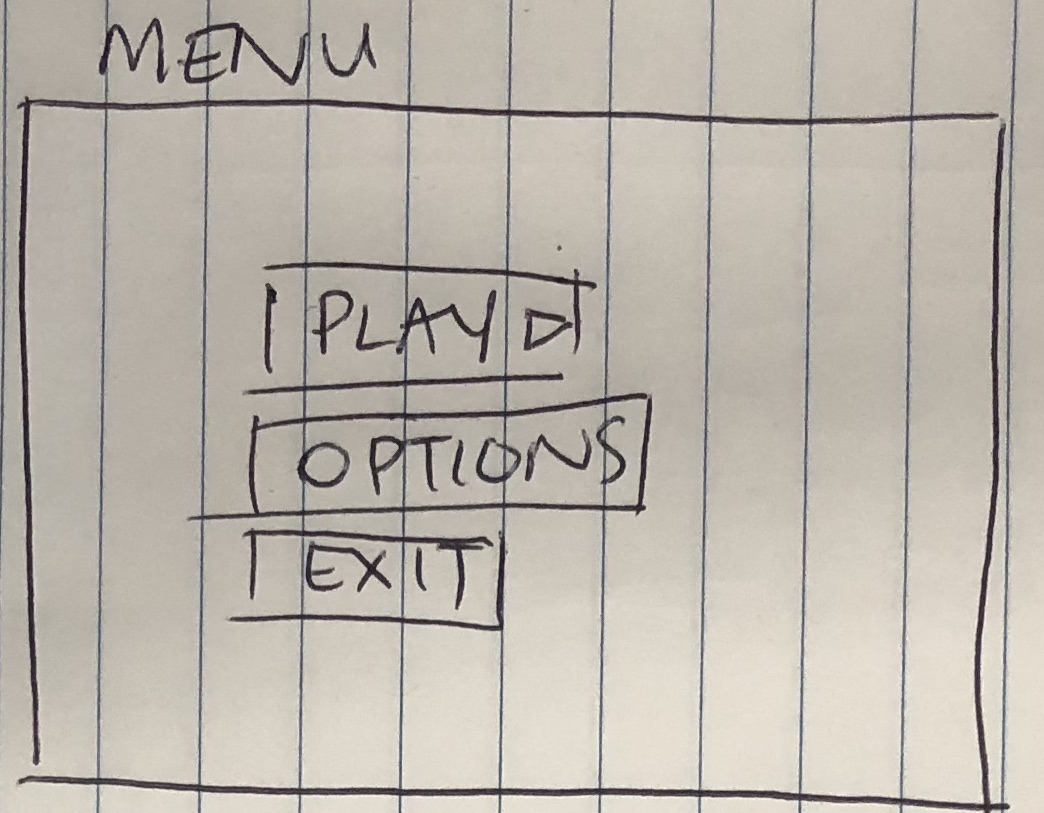 MENU
PLAY
OPTIONS
EXIT